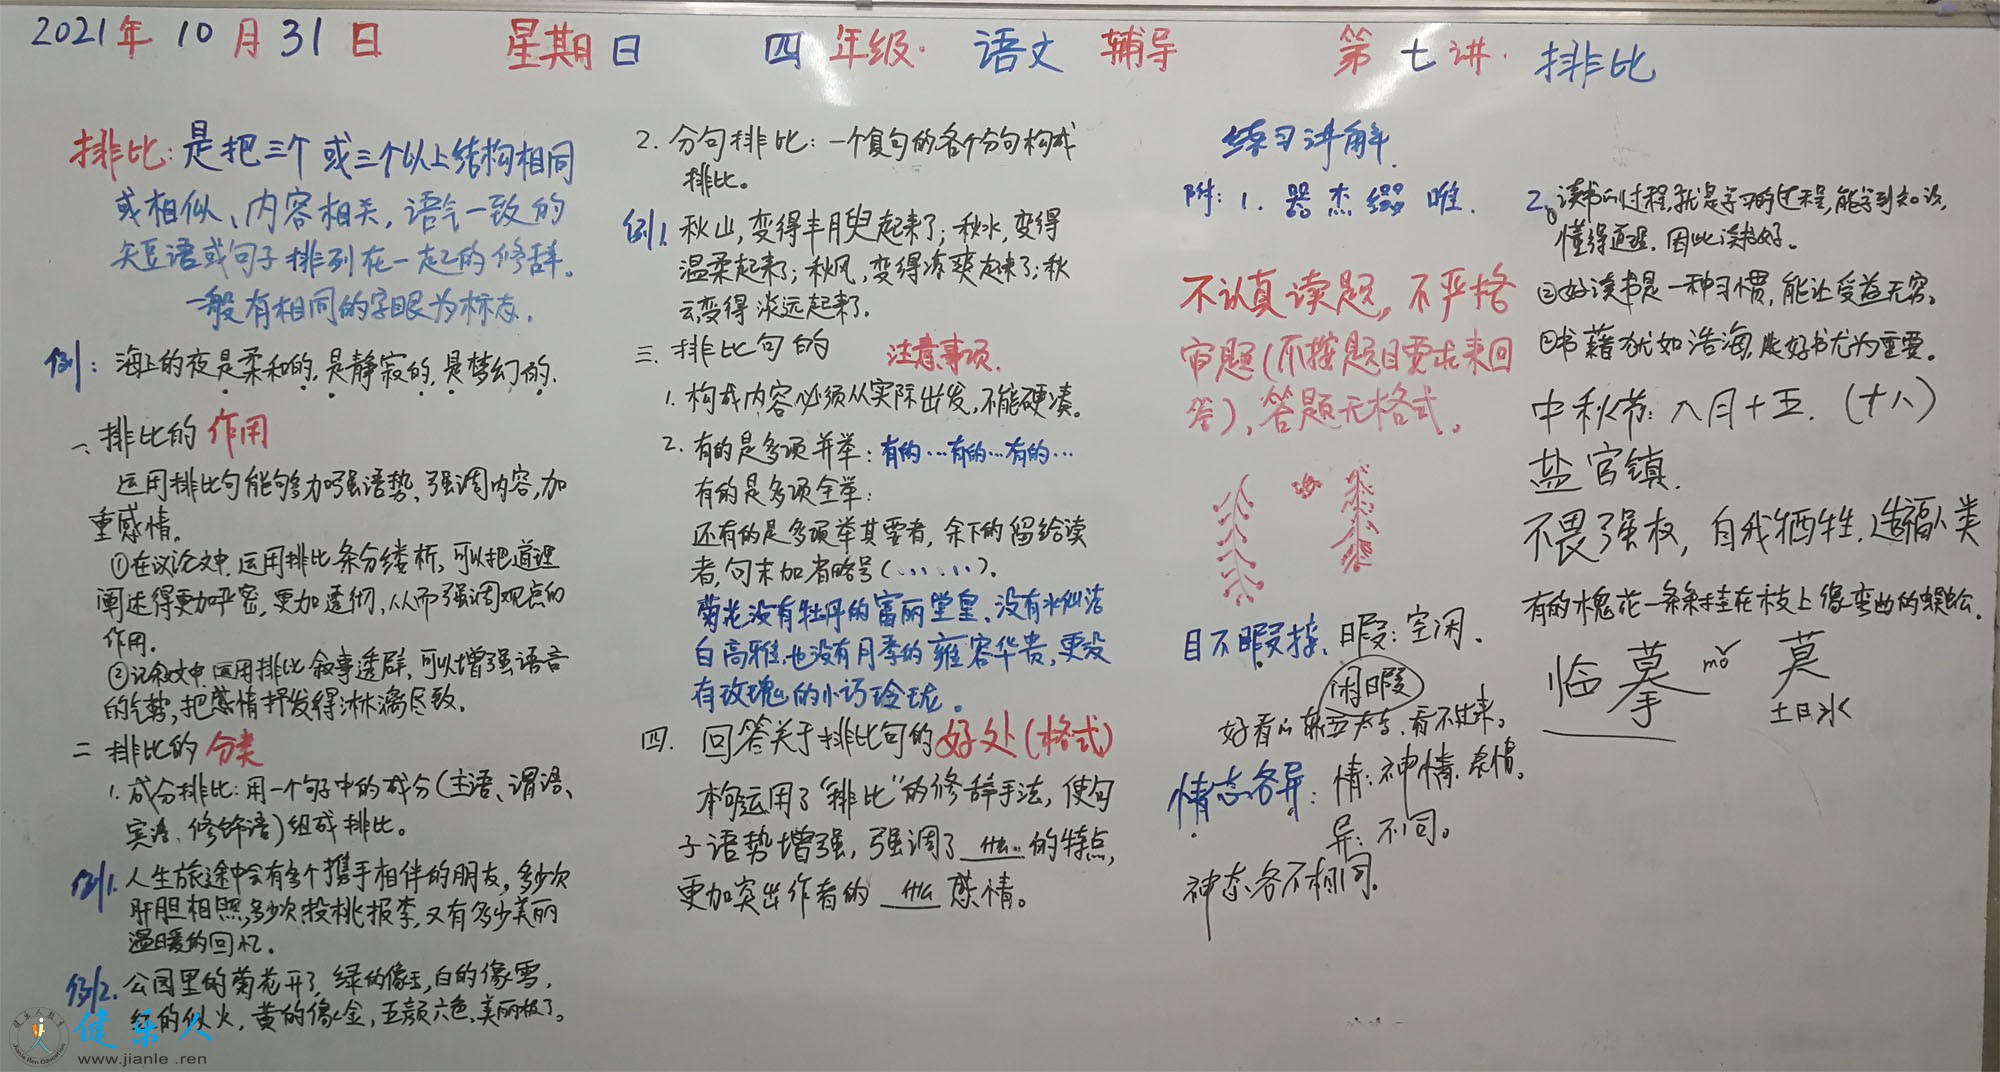 2021年10月31日 星期日 四年级·语文 辅导 第七讲·排比
排比:是把三个或三个以上结构相同
或相似、内容相关,语气一致的
短语或句子排列在一起的修辞。
一般有相同的字眼为标志.
例:海上的夜是柔和的,是静寂的,是梦幻的.
一、排比的作用
运用排比句能够加强语势、强调内容,加
重感情。
①在议论文中,运用排比条分缕析,可以把道理
阐述得更加严密,更加透彻,从而强调观点的
作用.
②记叙文中,运用排比叙事透辟,可以增强语言
的气势,把感情抒发得淋漓尽致.
二 排比的分类
1.成分排比:用一个句子中的成分(主语、谓语、
宾语、修饰语)组成排比。
例1.人生旅途中会有多个携手相伴的朋友,多少次
肝胆相照,多少次投桃报李,又有多少美丽
温暖的回忆。
例2.公园里的菊花开了,绿的像玉,白的像雪,
红的似火,黄的像金,五颜六色,美丽极了。
健乐人
www.jianle.ren
2.分句排比:一个复句的各个分句构成
排比。
例1.秋山,变得丰腴起来了;秋水,变得
温柔起来了;秋风,变得凉爽起来了;秋
云变得淡远起来了.
三、排比句的 注意事项.
1.构成内容必须从实际出发,不能硬凑。
2.有的是多项并举:有的…有的…有的…
有的是多项全举:
还有的是多项举其要者,余下的留给读
者,句末加省略号(……)。
菊花没有牡丹的富丽堂皇,没有水仙洁
白高雅,也没有月季的雍容华贵,更没
有玫瑰的小巧玲珑。
四.回答关于排比句的好处(格式)
本句运用了“排比”的修辞手法,使句
子语势增强,强调了什么的特点,
更加突出作者的什么感情。
练习讲解.
附:1.器 杰 缀 唯.
不认真读题,不严格
审题(不按题目要求来回
答),答题无格式。
目不暇接、暇:空闲.
闲暇
好看的东西太多,看不过来。
情态各异:情:神情.表情。
异:不同。
神态各不相同.
2.①读书的过程,就是学习的过程,能学到知识,
懂得道理.因此读书好。
②好读书是一种习惯,能让受益无穷。
书籍犹如浩海,读好书尤为重要。
中秋节:八月十五.(十八)
盐官镇.
不畏强权,自我牺牲.造福人类
有的槐花一条条挂在枝上像弯曲的蜈蚣.
临摹 mó 莫
土日水